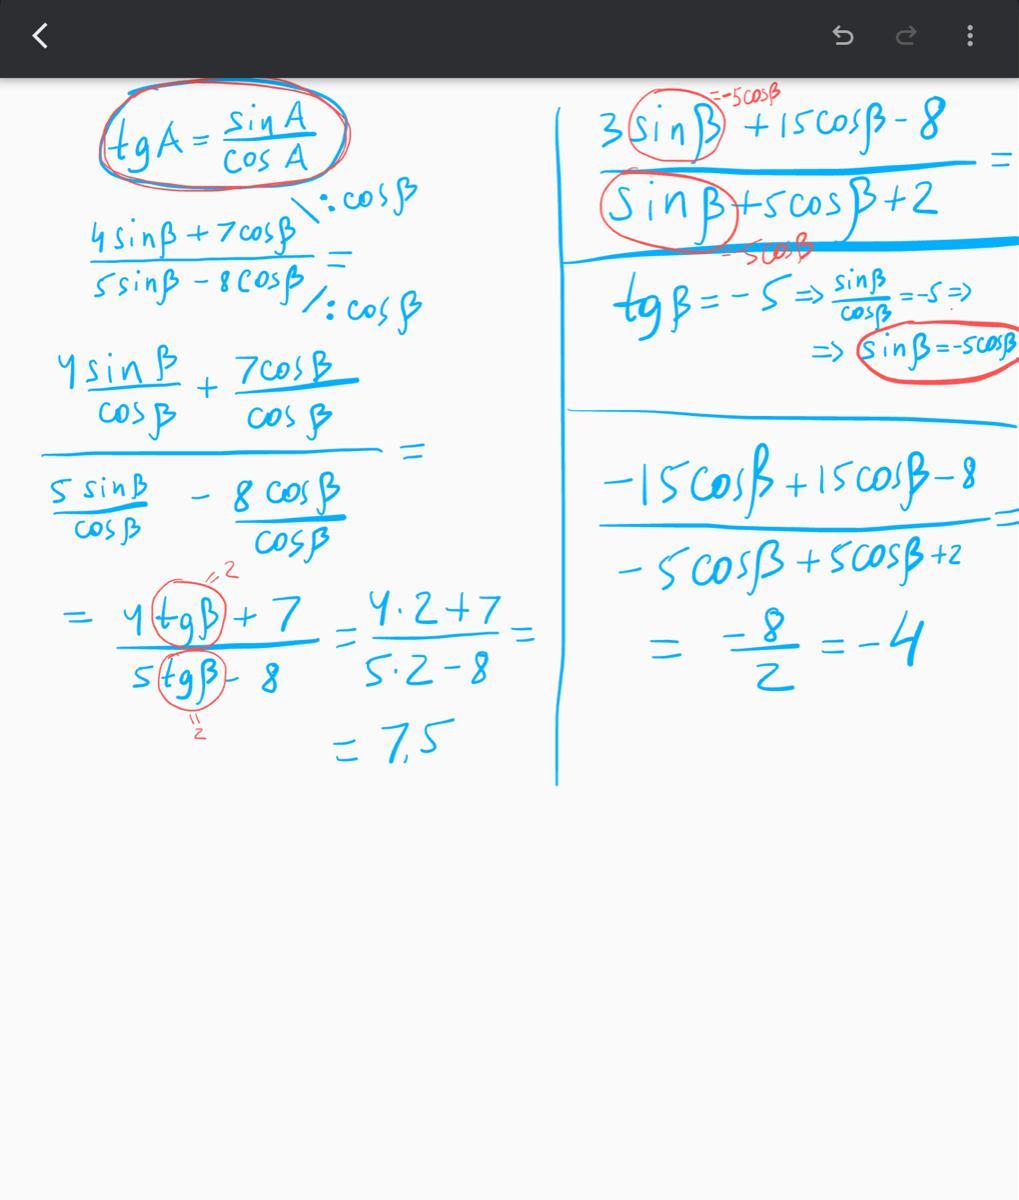 tgA = sin A / cos A
4 sinβ + 7cosβ \ : cosβ
5 sinβ - 8 cosβ / : cosβ
=
4 sin β / cos β + 7cos β / cos β
5 sinβ / cosβ - 8 cosβ / cosβ
=
= 2
= 4 tgβ + 7 / 5 tgβ - 8 = 4·2+7 / 5·2-8 =
= 2
= 7,5
= -5cosβ
3 sinβ + 15cosβ - 8
=
sinβ + 5cosβ + 2
= -5cosβ
tgβ = -5 => sinβ / cosβ = -5 =>
=> sinβ = -5cosβ
-15cosβ + 15cosβ - 8
=
- 5cosβ + 5cosβ + 2
= -8 / 2 = -4